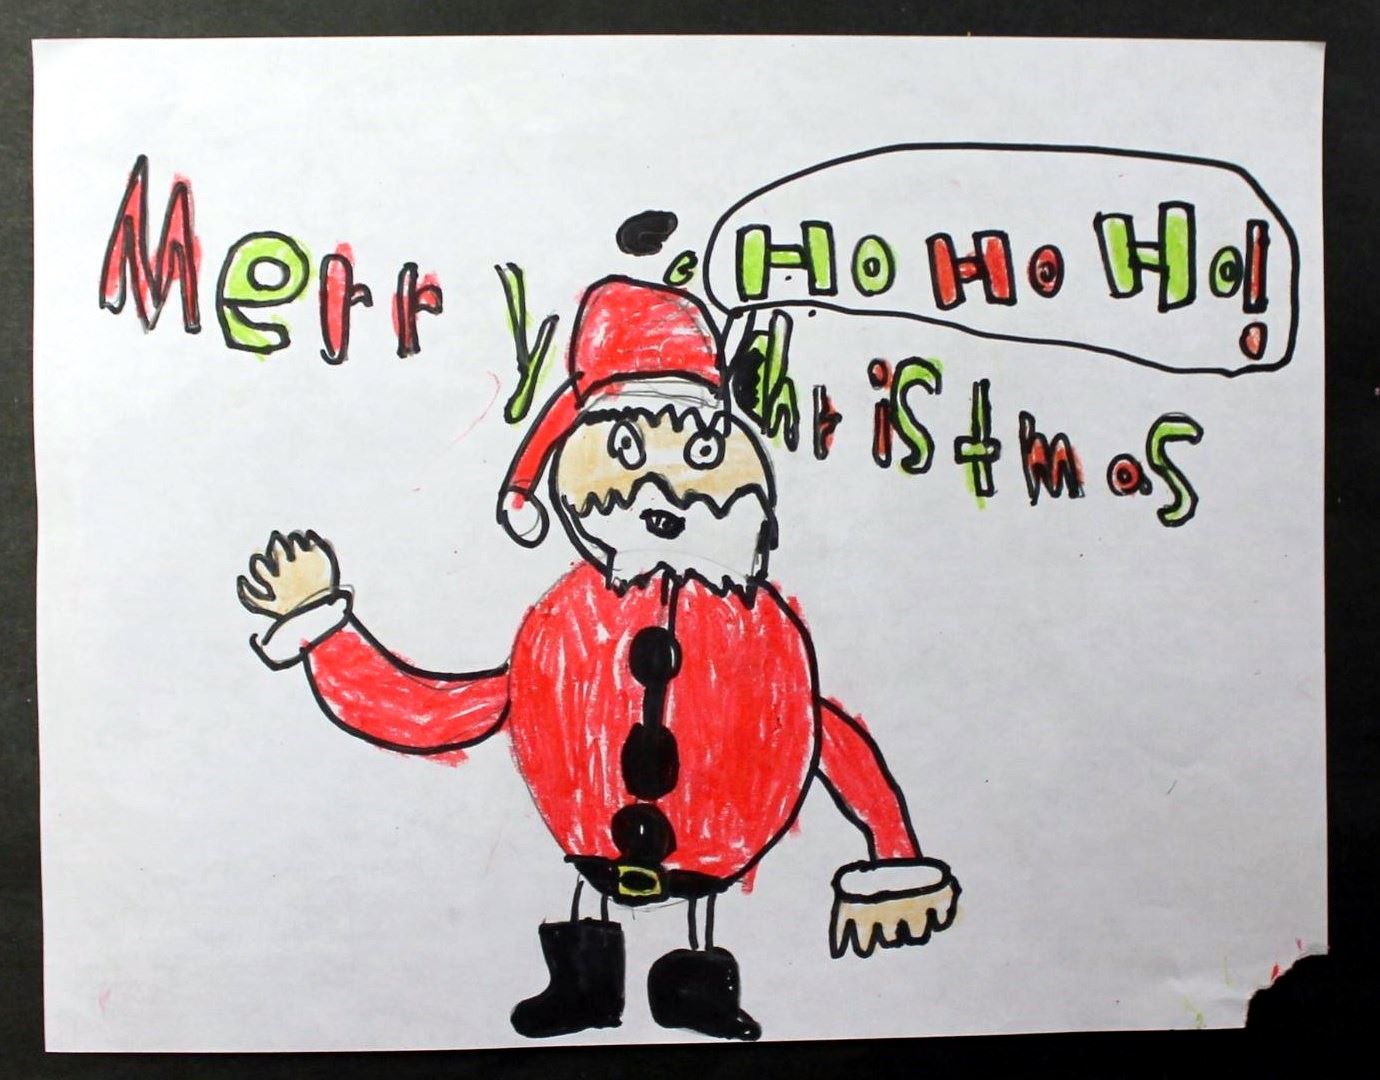 Merry Christmas
Ho Ho Ho!